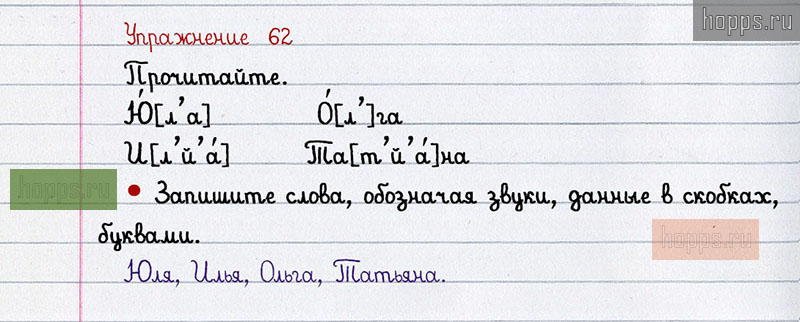 hopps.ru
Упражнение 62
Прочитайте.
Ю́[л’а] О́[л’]га
И[л’й’а́] Та[т’й’а́]на
hopps.ru
• Запишите слова, обозначая звуки, данные в скобках,
буквами.
hopps.ru
Юля, Илья, Ольга, Татьяна.